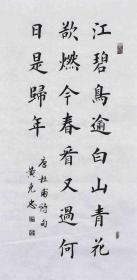 江碧鳥逾白山青花
欲燃今春看又過何
日是歸年
唐杜甫詩句
黃克忠